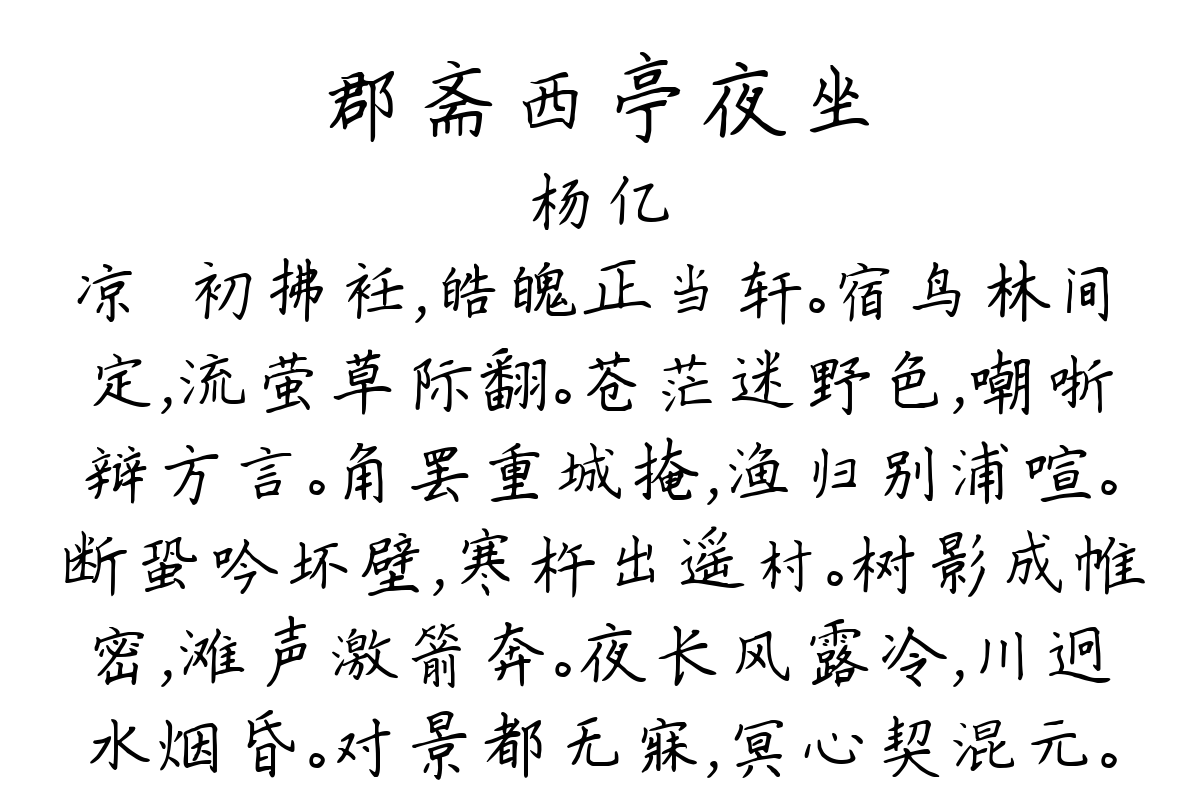 郡斋西亭夜坐
杨亿
凉 初拂衽,皓魄正当轩。宿鸟林间
定,流萤草际翻。苍茫迷野色,嘲哳
辩方言。角罢重城掩,渔归别浦喧。
断蛩吟坏壁,寒杵出遥村。树影成帷
密,滩声激箭奔。夜长风露冷,川迥
水烟昏。对景都无寐,冥心契混元。